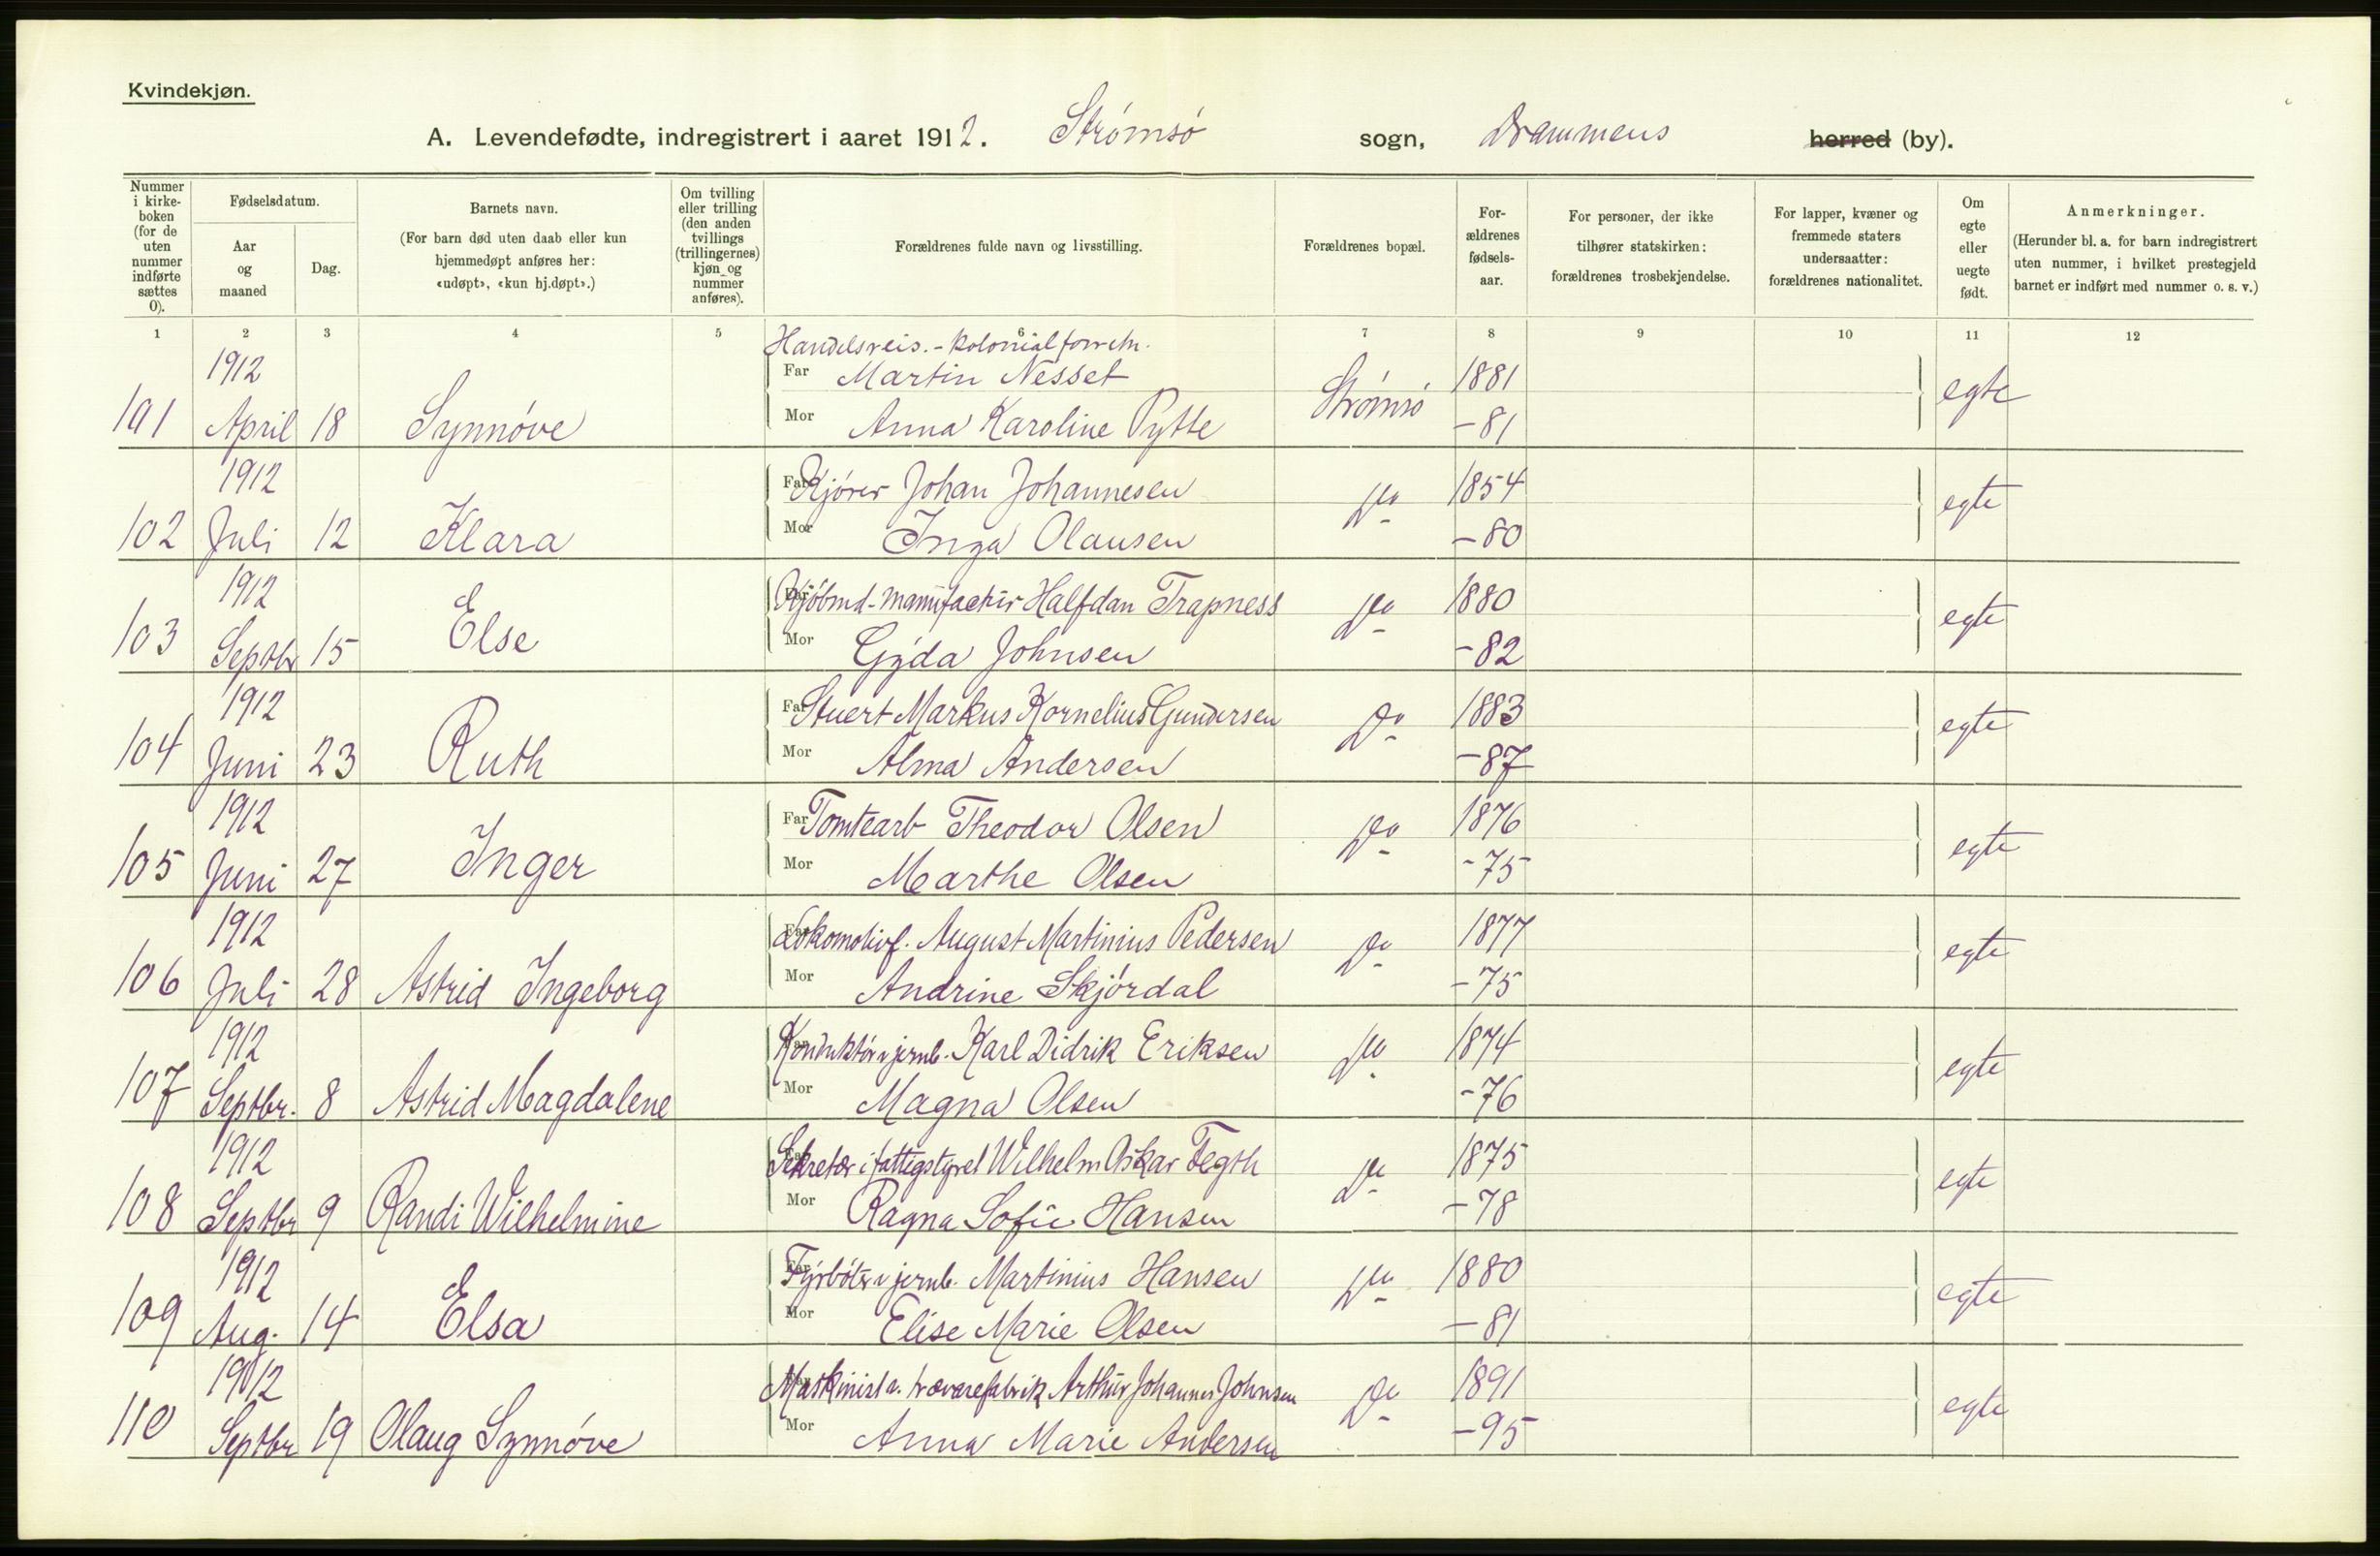 Kvindekjøn.
A. Levendefødte, indregistrert i aaret 1912. Strømsø sogn, Drammens herred (by).
Nummer i kirkeboken (for de uten nummer indførte sættes 0).
Fødselsdatum.
Aar og maaned
Dag.
Barnets navn.
(For barn død uten daab eller kun hjemmedøpt anføres her: «udøpt», «kun hj.døpt».)
Om tvilling eller trilling (den anden tvillings (trillingernes) kjøn og nummer anføres).
Forældrenes fulde navn og livsstilling.
Forældrenes bopæl.
Forældrenes fødselsaar.
For personer, der ikke tilhører statskirken: forældrenes trosbekjendelse.
For lapper, kvæner og fremmede staters undersaatter: forældrenes nationalitet.
Om egte eller uegte født.
Anmerkninger.
(Herunder bl. a. for barn indregistrert uten nummer, i hvilket prestegjeld barnet er indført med nummer o. s. v.)
1 2 3 4 5 6 7 8 9 10 11 12
Handelsreis. - kolonialforretn.
1912 Far Martin Nesset Strømsø 1881 egte
101 April 18 Synnøve Mor Anna Karoline Pytte -81
1912 Far Kjører Johan Johannesen Do 1854 egte
102 Juli 12 Klara Mor Inga Olausen -80
1912 Far Kjøbmd-manufactur Halfdan Trapness Do 1880 egte
103 Septbr 15 Else Mor Gyda Johnsen -82
1912 Far Stuert Markus Kornelius Gundersen Do 1883 egte
104 Juni 23 Ruth Mor Alma Andersen -87
1912 Far Tomtearb Theodor Olsen Do 1876 egte
105 Juni 27 Inger Mor Marthe Olsen -75
1912 Far Lokomotivf. August Martinius Pedersen Do 1877 egte
106 Juli 28 Astrid Ingeborg Mor Andrine Skjørdal -75
1912 Far Konduktør v jernb. Karl Didrik Eriksen Do 1874 egte
107 Septbr. 8 Astrid Magdalene Mor Magna Olsen -76
1912 Far Sekretær i fattigstyret Wilhelm Oskar Fegth Do 1875 egte
108 Septbr 9 Randi Wilhelmine Mor Ragna Sofie Hansen -78
1912 Far Fyrbøter v jernb. Martinius Hansen Do 1880 egte
109 Aug. 14 Elsa Mor Elise Marie Olsen -81
1912 Far Maskinist v. trævarefabrik Arthur Johannes Johnsen Do 1891 egte
110 Septbr 19 Olaug Synnøve Mor Anna Marie Andersen -95